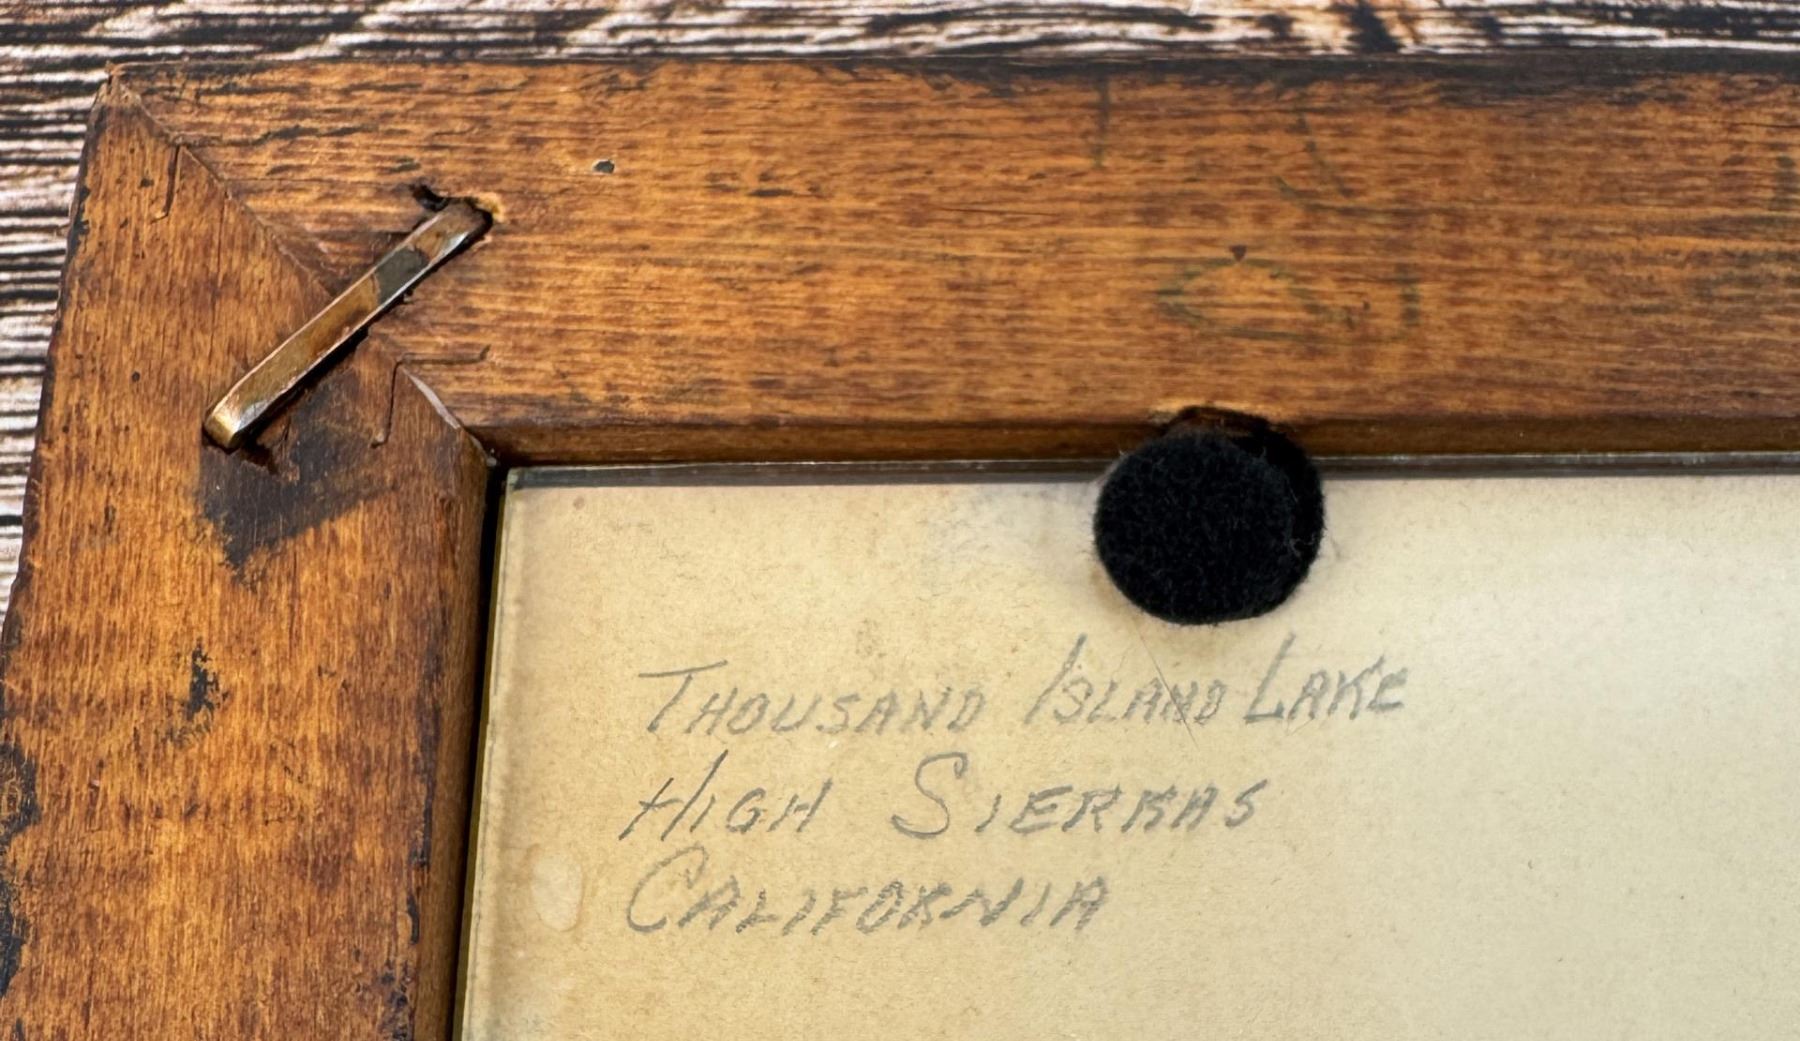 THOUSAND ISLAND LAKE
HIGH SIERRAS
CALIFORNIA